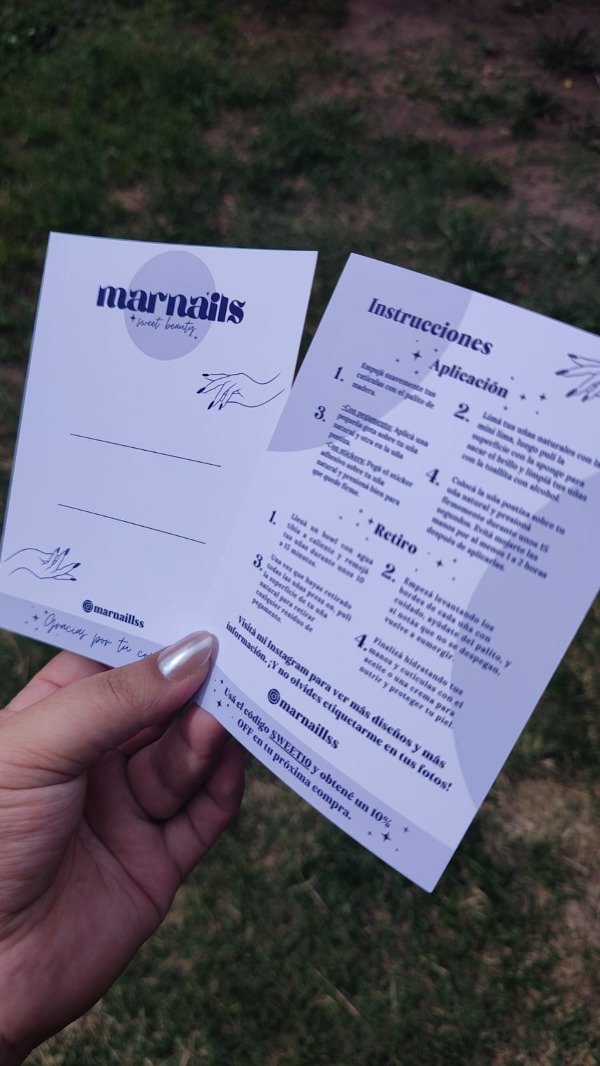 marnails
sweet beauty
@marnaillss
Gracias por tu
Instrucciones
Aplicación
1. Empujá suavemente tus
cutículas con el palito de
madera.
2. Limá tus uñas naturales con la
mini lima, luego pulí la
superficie con la sponge para
sacar el brillo y limpiá tus uñas
con la toallita con alcohol.
3. -Con pegamento: Aplicá una
pequeña gota sobre tu uña
natural y otra en la uña
postiza.
-Con stickers: Pegá el sticker
adhesivo sobre tu uña
natural y presioná bien para
que quede firme.
4. Colocá la uña postiza sobre tu
uña natural y presioná
firmemente durante unos 15
segundos. Evitá mojarte las
manos por al menos 1 a 2 horas
después de aplicarlas.
Retiro
1. Llená un bowl con agua
tibia a caliente y remojá
tus uñas durante unos 10
a 15 minutos.
2. Empezá levantando los
bordes de cada uña con
cuidado, ayudate del palito, y
si notás que no se despegan,
vuelve a sumergir.
3. Una vez que hayas retirado
todas las uñas press on, pulí
la superficie de tu uña
natural para retirar
cualquier residuo de
pegamento.
4. Finalizá hidratando tus
manos y cutículas con el
aceite o una crema para
nutrir y proteger tu piel.
Visitá mi Instagram para ver más diseños y más
información. ¡Y no olvides etiquetarme en tus fotos!
@marnaillss
Usá el código SWEET10 y obtené un 10%
OFF en tu próxima compra.